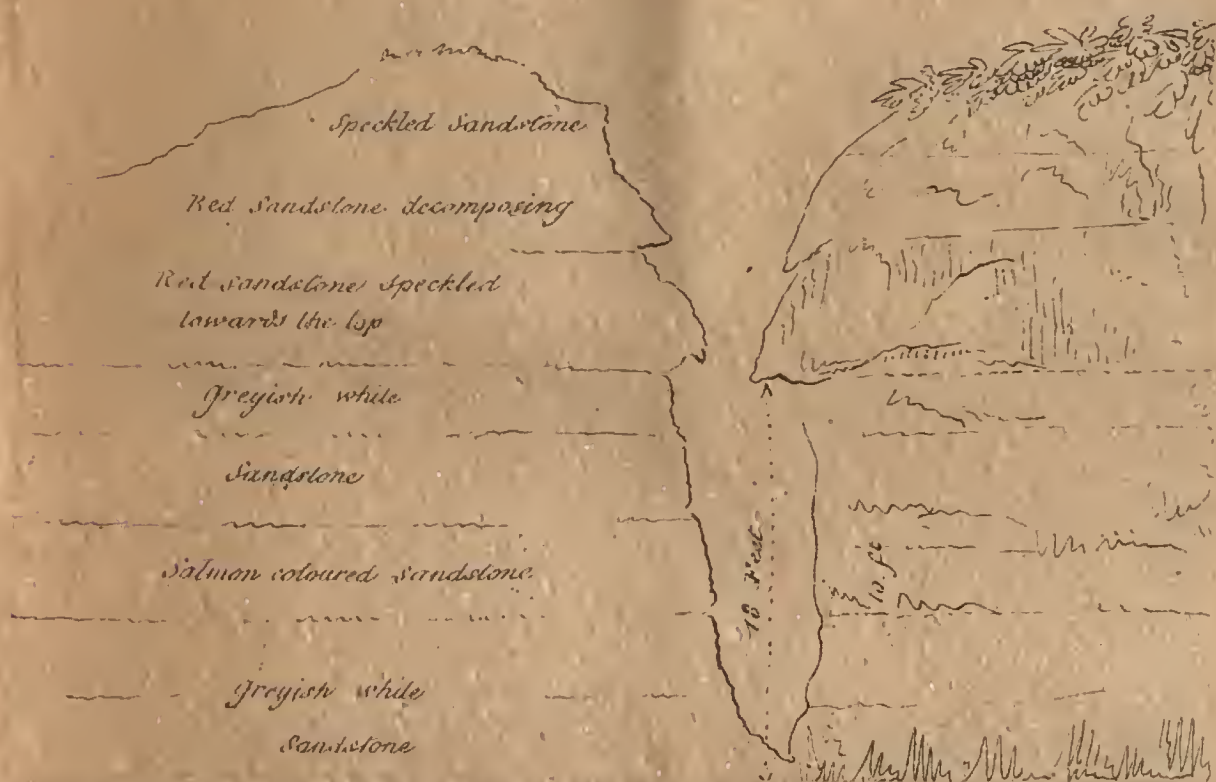 Speckled Sandstone
Red Sandstone decomposing
Red sandstone speckled
towards the top
Greyish white
Sandstone
Salmon coloured Sandstone
Greyish white
Sandstone
18 Feet
10 ft